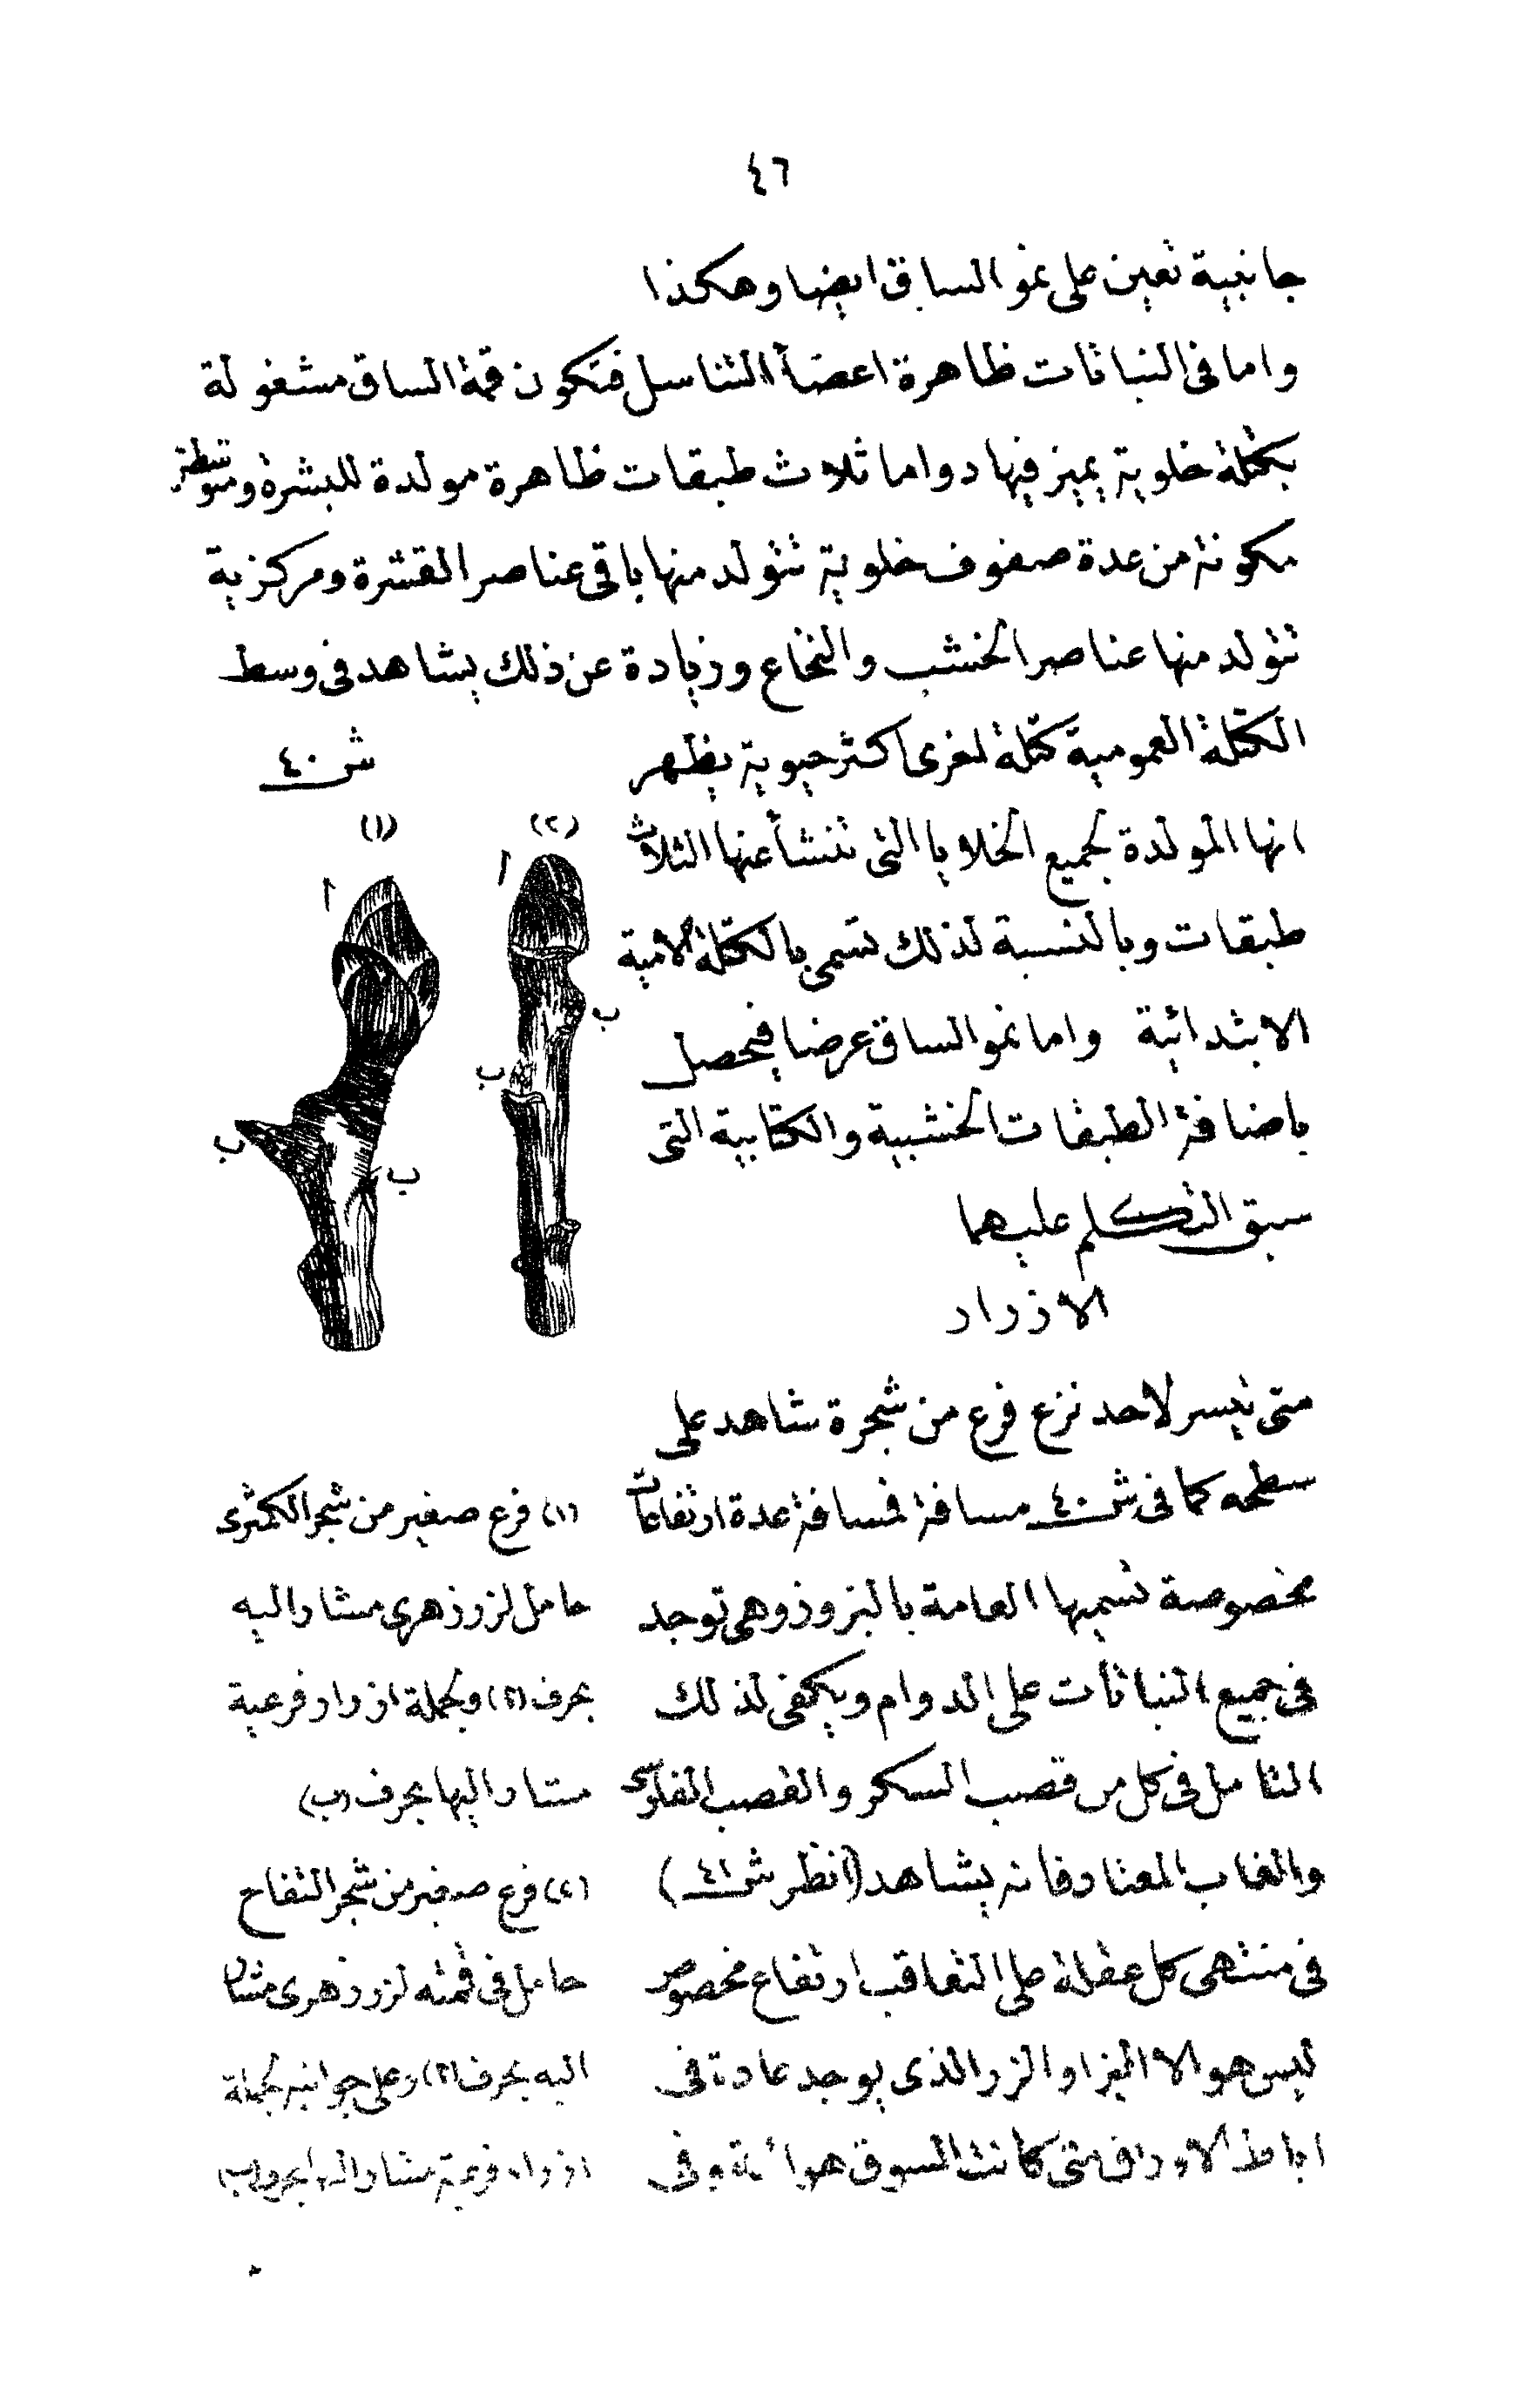 ٤٦
جانبية تعين على نمو الساق ايضا وهكذا
واما فى النباتات ظاهرة اعضأ التناسل فتكون قمة الساق مشغولة
بكتلة خلوية يميز فيها دواما ثلاث طبقات ظاهرة مولدة للبشرة ومتوسطة
مكونة من عدة صفوف خلوية تتولد منها باقى عناصر القشرة ومركزية
تتولد منها عناصر الخشب والنخاع وزيادة عن ذلك يشاهد فى وسط
الكتلة العمومية كتلة اخرى اكثر حيوية يظهر
انها المولدة لجميع الخلايا التى تنشأ عنها الثلاث
طبقات وبالنسبة لذلك تسمى بالكتلة الامية
الابتدائية واما نمو الساق عرضا فيحصل
باضافة الطبقات الخشبية والكتابية التى
سبق التكلم عليهما
الازرار
متى تيسر لاحد نزع فرع من شجرة شاهد على
سطحه كما فى ش٤٠ مسافة فمسافة عدة ارتفاعات
مخصوصة تسميها العامة بالبزوز وهى توجد
فى جميع النباتات على الدوام ويكفى لذلك
التامل فى كل من قصب السكر والقصب الفارسى
والغاب المعتاد فانه يشاهد (انظر ش٤١)
فى منتهى كل عقلة على التعاقب ارتفاع مخصوص
ليس هو الا البز او الزر الذى يوجد عادة فى
اباط الاوراق متى كانت السوق هوائية وفى
ش٤٠
(١)
(٢)
أ
أ
ب
ب
ب
ب
(١) فرع صغير من شجر الكمثرى
حامل لزر زهرى مشار اليه
بحرف (أ) وبجملة ازرار فرعية
مشار اليها بحرف (ب)
(٢) فرع صغير من شجر التفاح
حامل فى قمته لزر زهرى مشار
اليه بحرف (أ) وعلى جوانبه لجملة
ازرار فرعية مشار اليها بحرف (ب)